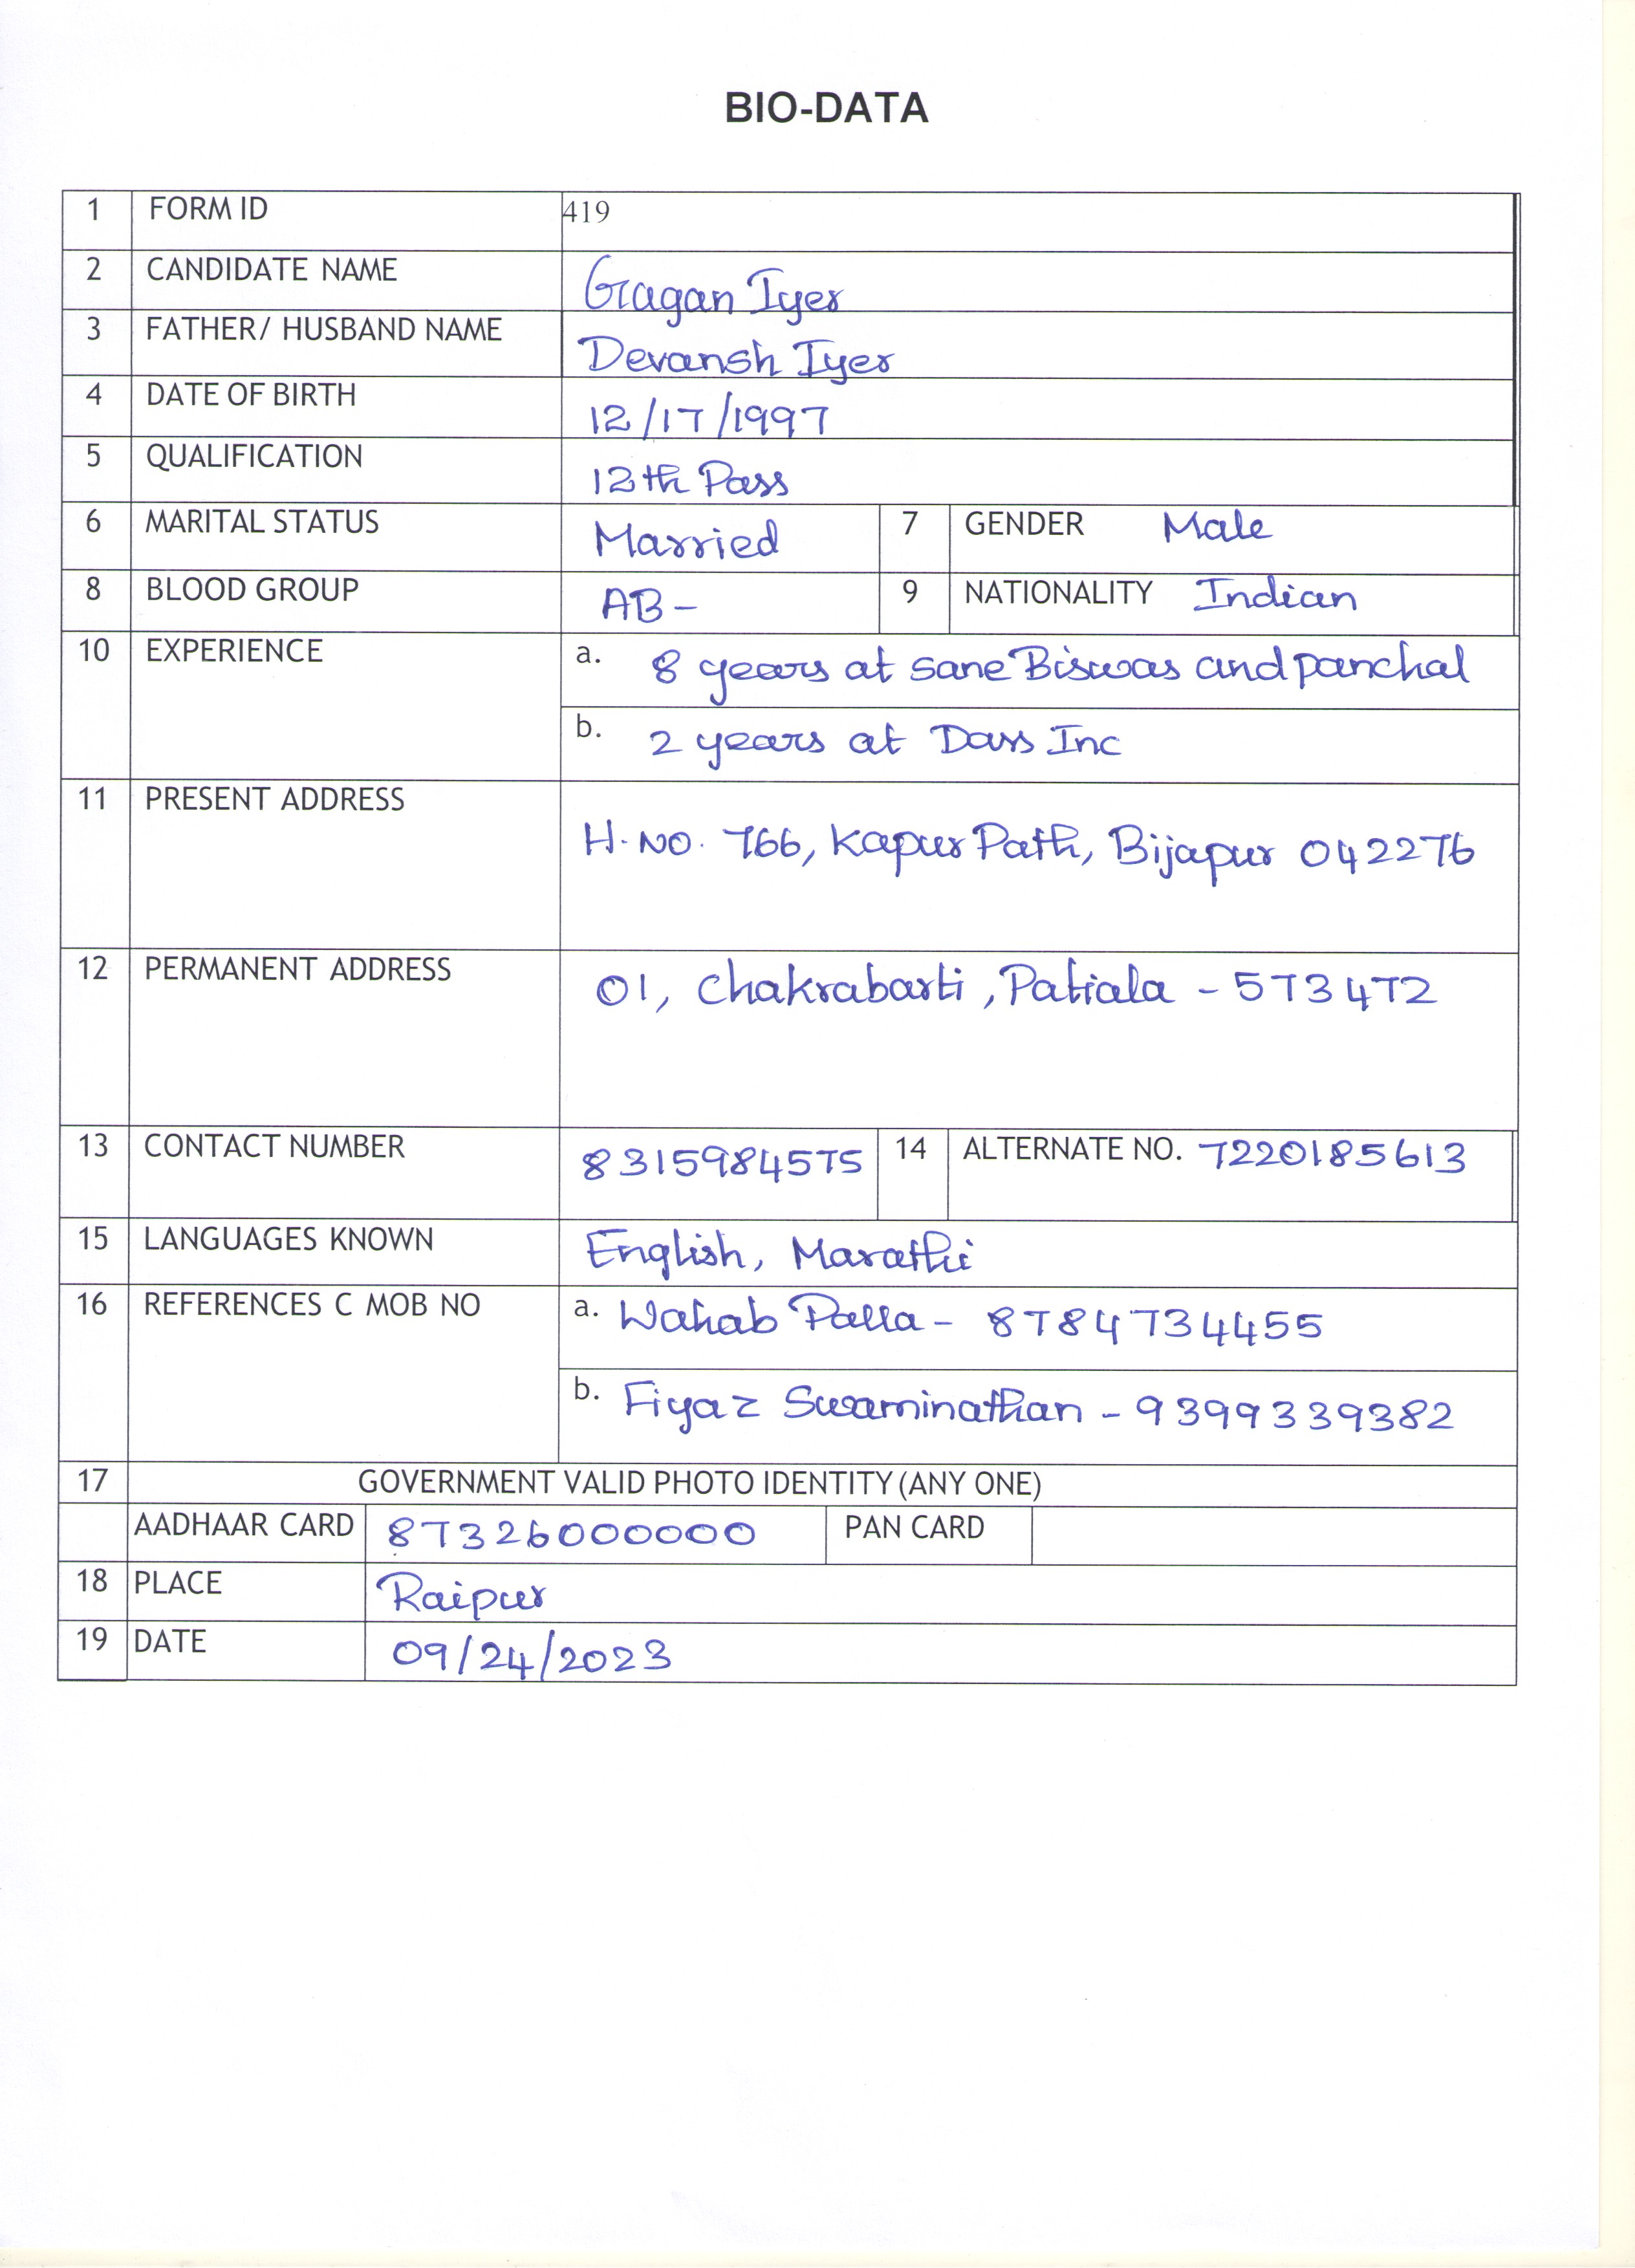 BIO-DATA
1 FORM ID 419
2 CANDIDATE NAME Gagan Iyer
3 FATHER/ HUSBAND NAME Devansh Iyer
4 DATE OF BIRTH 12/17/1997
5 QUALIFICATION 12th Pass
6 MARITAL STATUS Married 7 GENDER Male
8 BLOOD GROUP AB- 9 NATIONALITY Indian
10 EXPERIENCE a. 8 years at sane Biswas and panchal
b. 2 years at Dass Inc
11 PRESENT ADDRESS
H.NO. 766, Kapur Path, Bijapur 042276
12 PERMANENT ADDRESS 01, Chakrabarti, Patiala - 573472
13 CONTACT NUMBER 8315984575 14 ALTERNATE NO. 7220185613
15 LANGUAGES KNOWN English, Marathi
16 REFERENCES C MOB NO a. Wahab Palla - 8784734455
b. Fiyaz Swaminathan - 9399339382
17 GOVERNMENT VALID PHOTO IDENTITY (ANY ONE)
AADHAAR CARD 87326000000 PAN CARD
18 PLACE Raipur
19 DATE 09/24/2023